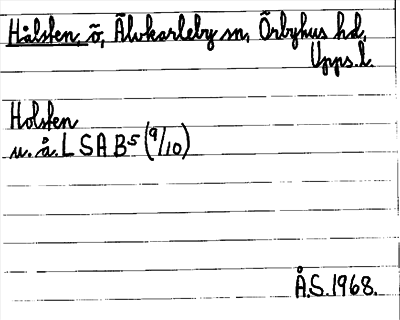 Hålsten, ö, Älvkarleby sn, Örbyhus hd,
Upps.l.
Holsten
u. å. L S A B⁵ (9/10)
Å.S. 1968.